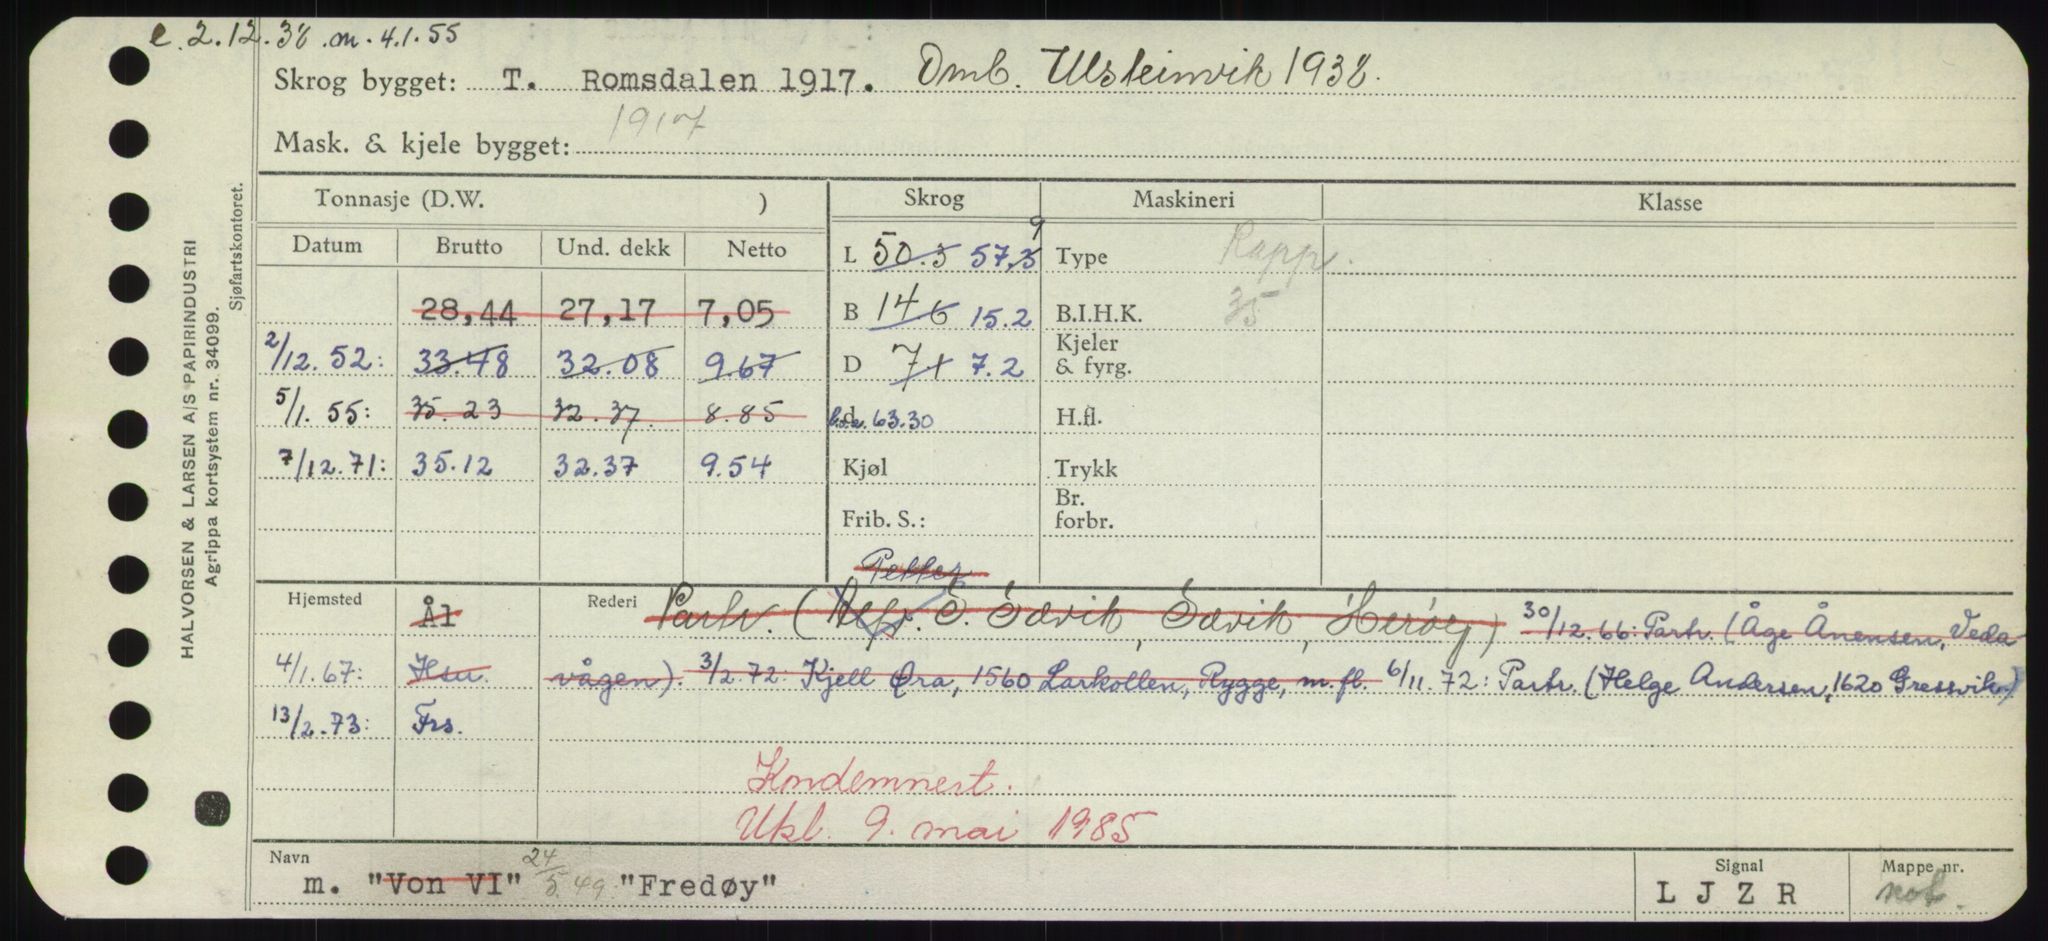 e. 2.12.38 . m. 4.1.55
Skrog bygget: T. Romsdalen 1917. Omb. Ulsteinvik 1938.
Mask. & kjele bygget: 1917
HALVORSEN & LARSEN A/S PAPIRINDUSTRI
Agrippa kortsystem nr. 34099.
Sjøfartskontoret.
Tonnasje (D.W. ) Skrog Maskineri Klasse
Datum Brutto Und. dekk Netto
L 50.5 57,3 9 Type Rapp.
28,44 27,17 7,05 B 14 6 15.2 B.I.H.K. 35
2/12. 52: 33.48 32.08 9.67 D 7,1 7.2 Kjeler & fyrg.
5/1. 55: 35.23 32.37. 8.85 d 63.30 H.fl.
7/12.71: 35.12 32.37 9.54 Kjøl Trykk
Frib. S.: Br. forbr.
Petter
Hjemsted Ål Rederi Partr. ( S. Sævik, Sævik, Herøy) 30/12.66: Partr. (Åge Ånensen, Veda-
4/1.67: Hsu. vågen). 3/2.72: Kjell Øra, 1560 Larkollen, Rygge, m.fl. 6/11.72: Partr. (Helge Andersen, 1620 Gressvik)
13/2.73: Frs.
Kondemnert.
Ukl. 9. mai 1985
Navn Signal Mappe nr.
m. "Von VI" 24/5.49 "Fredøy" L J Z R not.